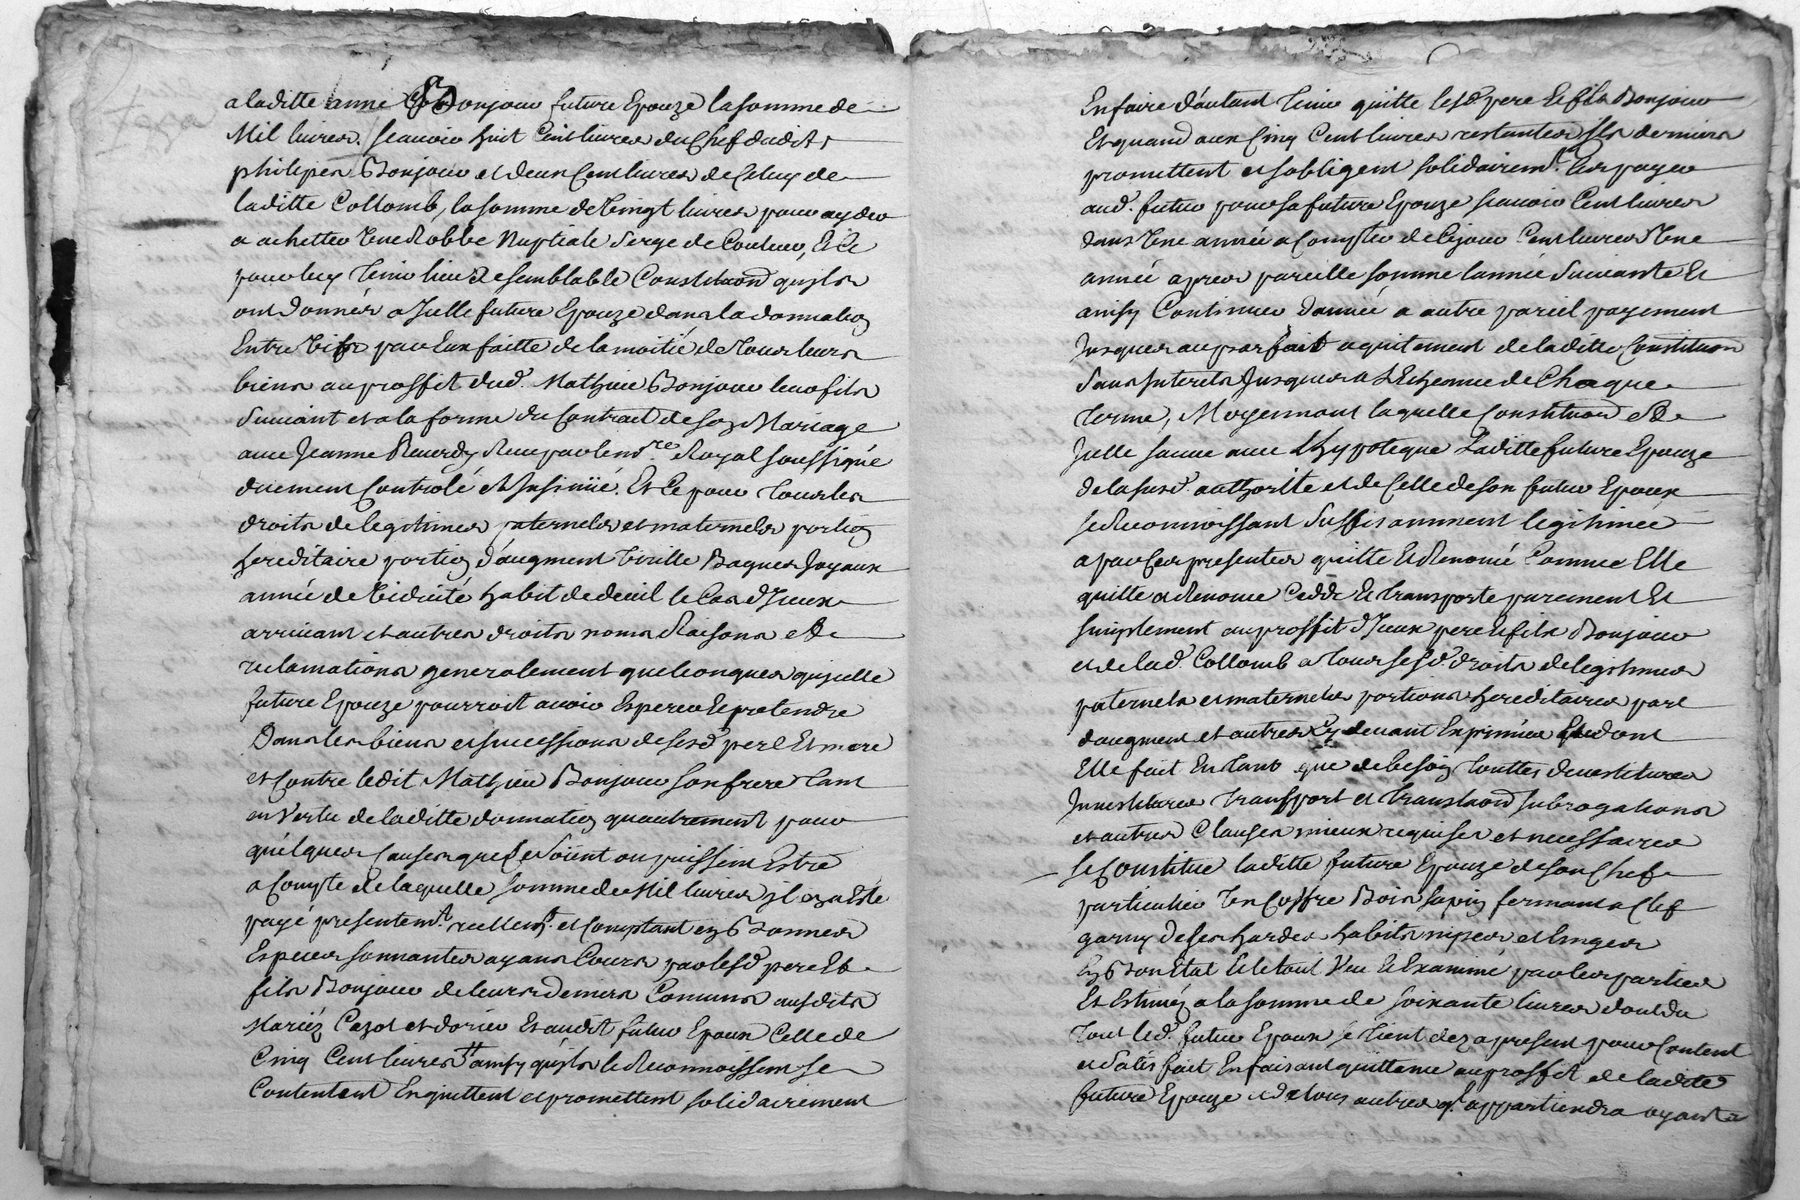 a laditte anne Bonjour future Epouze la somme de
Mil livres. scauoir huit Cent liures du Chef dudit
philipes Bonjour et deux Cent liures de Celuy de
laditte Collomb, la somme de Vingt liures pour ayder
a achetter Une Robbe Nuptiale Serge de Couleur, Et Ce
pour luy Tenir lieu de semblable Constitution quils
ont donnés a Jcelle future Epouze dans la donnation
Entre Vifs par Eux faitte de la moitié de Tous leurs
biens au proffit dud. Mathieu Bonjour leur fils
Suiuant et a la forme du Contract de son Mariage
auec Jeanne Reueu par le no.re Royal soussigné
duement Controlé et Jnsinüé, Et Ce pour Tous les
droits de legitimes paternels et maternels portion
hereditaire portion d'augment Virille Bagues Joyaux
année de Viduité habit de deuil le Cas d'Jceux
arriuant et autres droits noms Raisons et
reclamations generalement quelconques qu'jcelle
future Epouze pourroit auoir Esperer et pretendre
Dans les biens et successions de sesd. pere Et mere
et Contre ledit Mathieu Bonjour son frere tant
en Vertu de laditte donnation quautrement pour
quélques Causes que Ce Soient ou puissent Estre
a Compte de laquelle somme de Mil liures jl en a Esté
payé presentem.t reellem.t et Comptant en Bonnes
Especes sonnantes ayans Cours par lesd. pere Et
fils Bonjour de leurs deniers Comuns ausdits
Mariéz Cazot et dorier Et audit futur Epoux Celle de
Cinq Cent liures ainsy quils le Reconnoissent se
Contentent En quittent et promettent solidairement
En faire d'autant Tenir quitte lesd. pere et fils Bonjour
Et quand aux Cinq Cent liures restantes jls derniers
promettent et sobligent solidairem.t les payer
aud. futur pour sa future Epouze scauoir Cent liures
dans Une année a Compter de Cejour Cent liures Une
année apres pareille somme lannée Suiuante Et
ainsy Continuer dannée a autre pareil payement
Jusques au parfait aquitement de laditte Constitution
Sans Jnterets Jusques a L'Echeance de Chaque
terme, Moyennant laquelle Constitution et de
Jcelle sauue auec l'hypoteque Laditte future Epouze
de lasusd. authorité et de Celle de son futur Epoux
se Reconnoissant Suffisamment legitimée
a par Ces presentes quitté Et Renoncé Comme Elle
quitte et Renonce Cedde Et transporte purement Et
simplement au proffit d'Jceux pere et fils Bonjour
et de lad. Collomb a tous sesd. droits de legitimes
paternels et maternels portions hereditaires part
daugment et autres Cy deuant Exprimés Et dont
Elle fait En tant que de besoin touttes deuestitures
Jnuestitures transport et translation subrogations
et autres Clauses mieux requises et necessaires
se Constitue laditte future Epouze de son Chef
particulier Un Coffre Bois sapin fermant a Clef
garny de ses hardes habits nipes et linges
En Bon Etat Et le tout Veu Et Examiné par les parties
Et Estimés a la somme de soixante liures dont du
Tout led. futur Epoux se tient dez a present pour Content
et Satisfait En faisant quittance au proffit de laditte
future Epouze et de tous autres q.l appartiendra ayant a